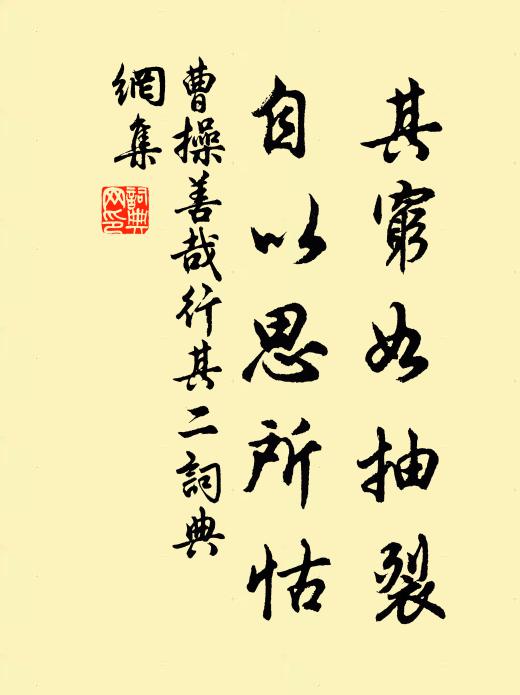 其窮如抽裂
自以思所怙
曹操善哉行其二詞典
網集
詞典
網印